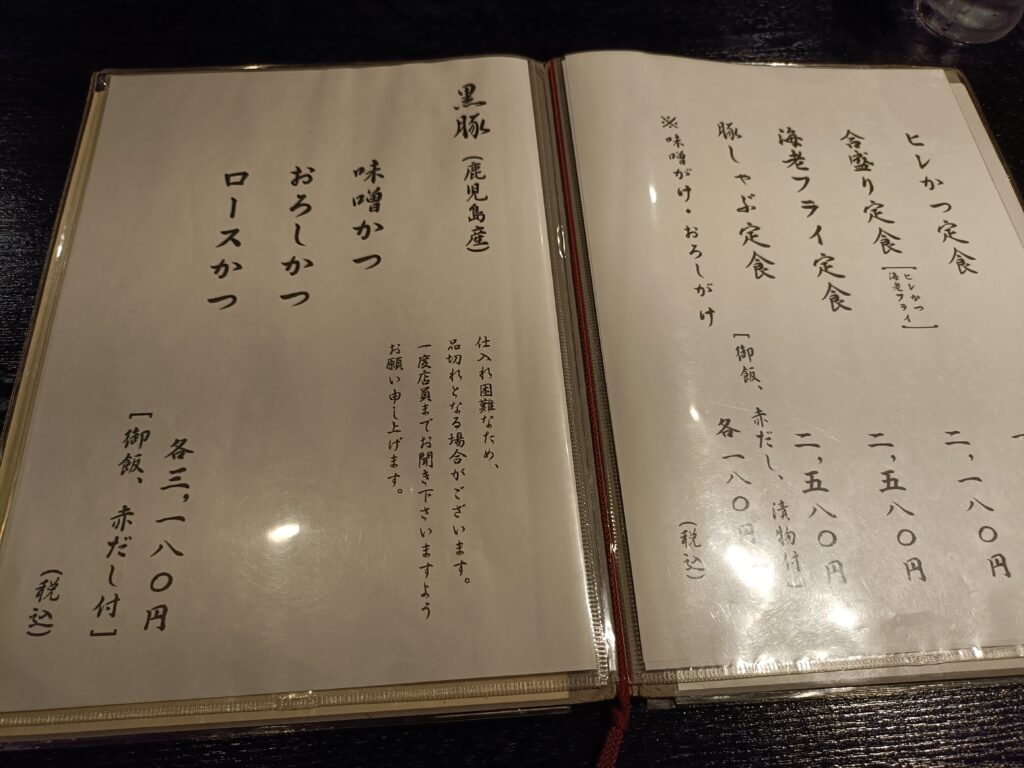 ヒレかつ定食 二,一八〇円
合盛り定食[ヒレかつ
海老フライ] 二,五八〇円
海老フライ定食 二,五八〇円
豚しゃぶ定食
[御飯、赤だし、漬物付]
※味噌がけ・おろしがけ 各一八〇円
(税込)
黒豚(鹿児島産)
仕入れ困難なため、
品切れとなる場合がございます。
一度店員までお聞き下さいますよう
お願い申し上げます。
味噌かつ
おろしかつ
ロースかつ
各三,一八〇円
[御飯、赤だし付]
(税込)